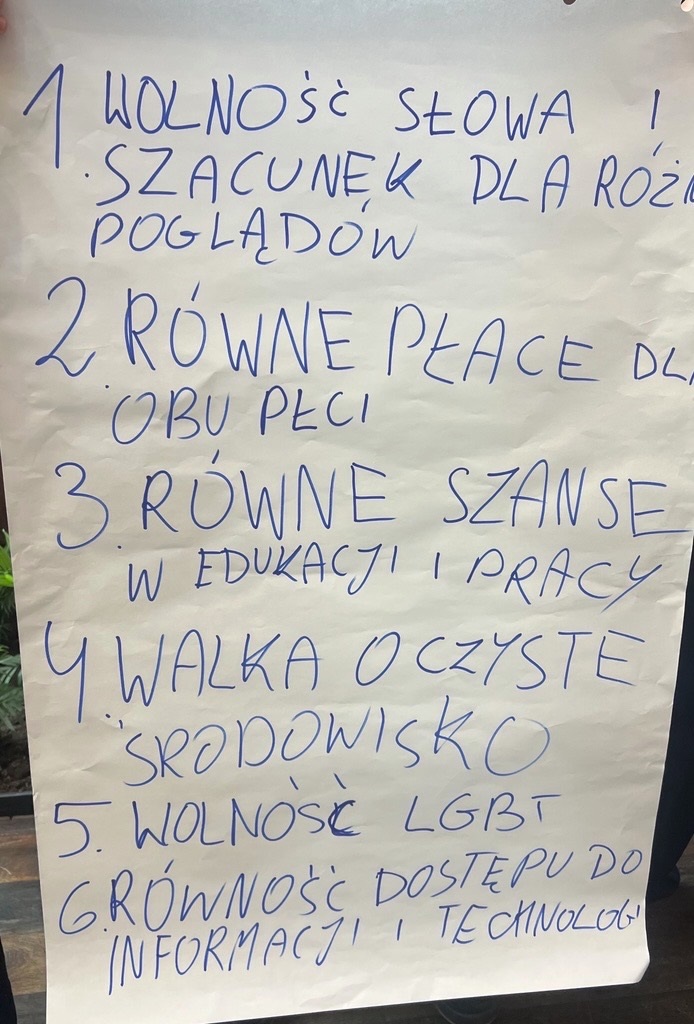 1. WOLNOŚĆ SŁOWA I
SZACUNEK DLA RÓŻN
POGLĄDÓW
2. RÓWNE PŁACE DLA
OBU PŁCI
3. RÓWNE SZANSE
W EDUKACJI I PRACY
4. WALKA O CZYSTE
ŚRODOWISKO
5. WOLNOŚĆ LGBT
6. RÓWNOŚĆ DOSTĘPU DO
INFORMACJI I TECHNOLOGI